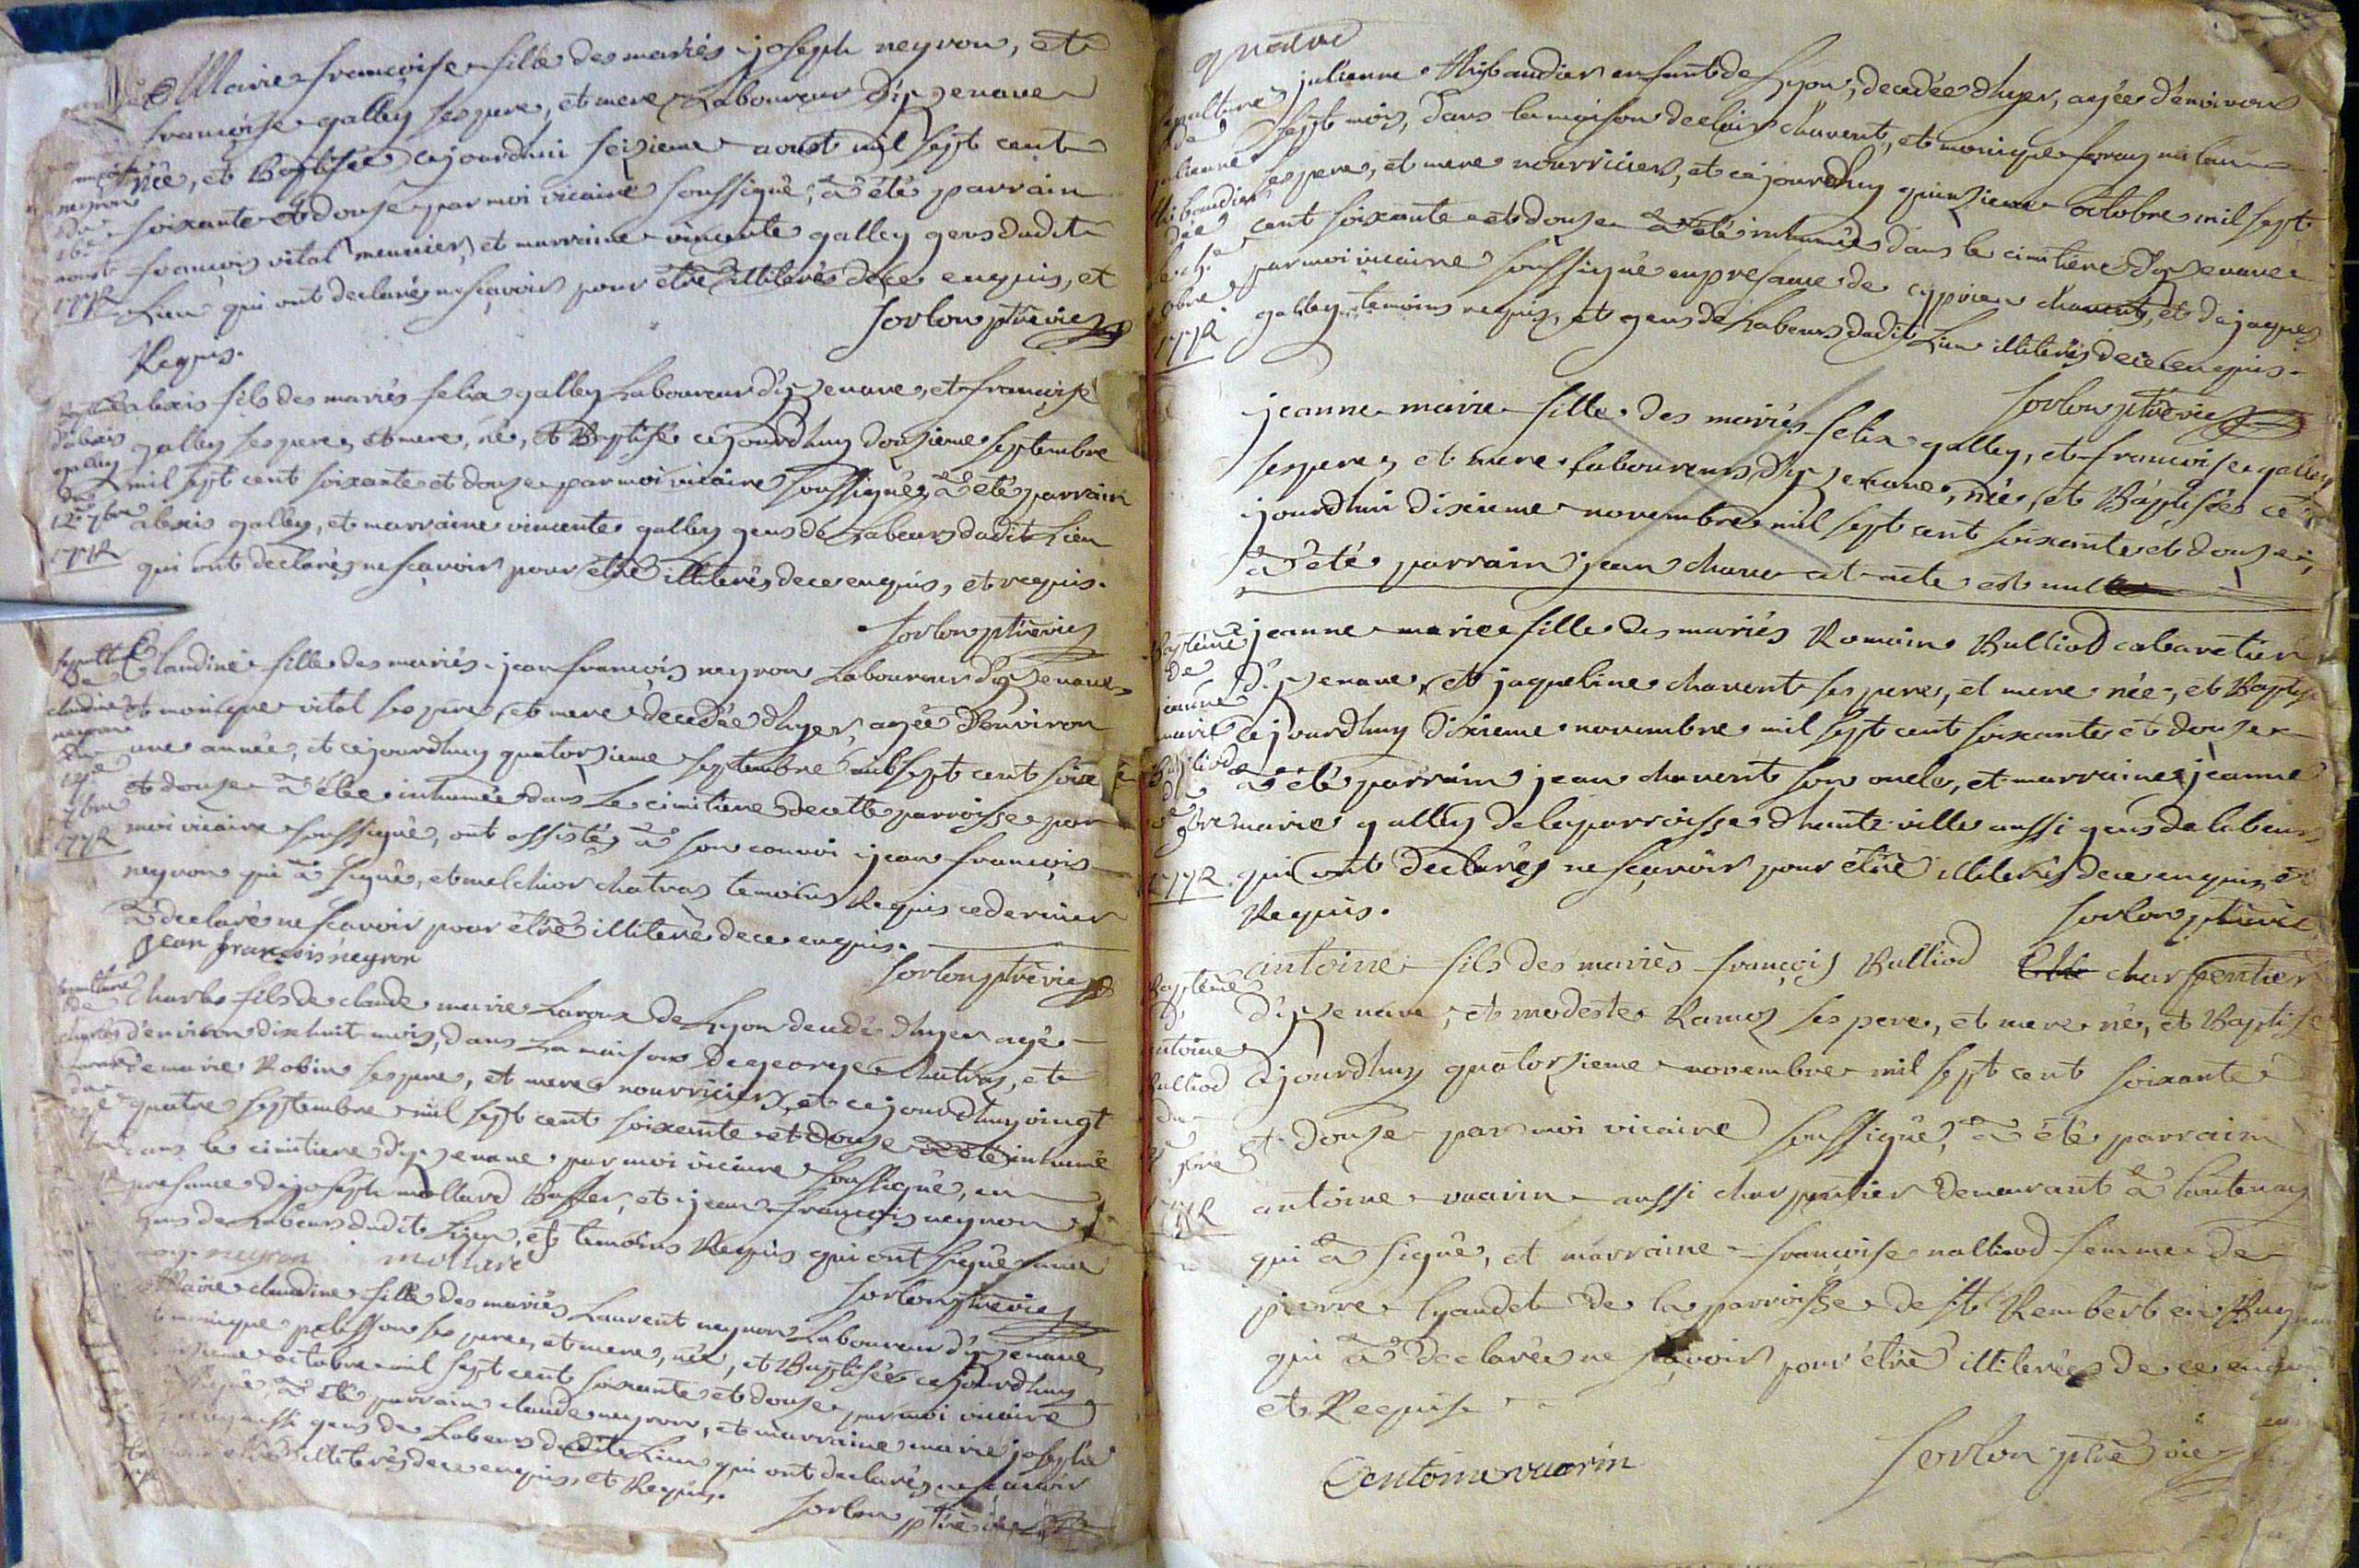 Marie françoise fille des mariés joseph neyron, et
françoise galley ses pere, et mere Laboureur d'ipenave
née, et Baptisée cejourdhui seisieme aoust mil sept cent
soixante et douse par moi vicaire soussigné, à été parrain
françois vital meunier, et marraine vincente galley gens dudit
Lieu qui ont declarés ne sçavoir pour être illiterés de ce enquis, et
Requis.
sorlon ptre vic
neyron
du
16e
aoust
1772
alexis fils des mariés felix galley Laboureur d'ipenave, et françoise
galley ses pere, et mere, né, et Baptisé cejourdhuy dousieme septembre
mil sept cent soixante et douze par moi vicaire soussigné, à été parrain
alexis galley, et marraine vincente galley gens de Labeur dudit Lieu
qui ont declarés ne sçavoir pour être illiterés de ce enquis, et requis.
sorlon ptre vic
d'alexis
galley
du
12e 7bre
1772
Claudine fille des mariés jean françois neyron Laboureur d'ipenave,
et monique vital ses pere, et mere decedée d'hyer, agée d'environ
une année, et cejourdhuy quatorsieme septembre mil sept cent soix
et douze à été inhumée dans Le cimitiere de cette parroisse par
moi vicaire soussigné, ont assistés à son convoi jean françois
neyron qui à signé, et melchior chatras temoins Requis ce dernier
à declaré ne scavoir pour être illiteré de ce enquis.
jean françois neyron
sorlon ptre vic
sepulture
de
claudine
neyron
du
14e
7bre
1772
Charles fils de claude marie Laroux de Lyon decedé d'hyer agé
d'environ dixhuit mois, dans La maison de george chatras, et
de marie Robin ses pere, et mere nourriciers, et cejourdhuy vingt
quatre septembre mil sept cent soixante et douse à été inhumé
dans le cimitiere d'ipenave par moi vicaire soussigné, en
presence de joseph mollard Buffer, et jean françois neyron
gens de Labeur dudit Lieu, et temoins Requis qui ont signé
neyron mollard
sorlon ptre vic
sepulture
de
charles
du
Marie claudine fille des mariés Laurent neyron Laboureur d'ipenave,
et monique pelisson ses pere, et mere, née, et Baptisée cejourdhuy
octobre mil sept cent soixante et douse par moi vicaire
à été parrain claude neyron, et marraine marie josephe
aussi gens de Labeur dudit Lieu qui ont declarés ne scavoir
illiterés de ce enquis, et Requis.
sorlon ptre vic
quatre
julienne thibaudier enfant de Lyon, decedée d'hyer, agée d'environ
sept mois, dans la maison de clair chavent, et monique
ses pere, et mere nourriciers, et cejourdhuy quinsieme octobre mil sept
cent soixante et douze à été inhumée dans le cimitiere d'ipenave
par moi vicaire soussigné en presance de cyprien chavent, et de jaques
galley temoins requis, et gens de Labeur dudit Lieu illiterés de ce enquis.
sorlon ptre vic
sepulture
de
julienne
thibaudier
1772
jeanne marie fille des mariés felix galley, et françoise galley
ses pere, et mere laboureurs d'ipenave, née, et Baptisée ce
jourdhui dixieme novembre mil sept cent soixante et douze,
à été parrain jean chave cet acte est nulle
jeanne marie fille des mariés Romain Bulliod cabaretier
d'ipenave, et jaqueline chavent ses pere, et mere née, et Baptisée
cejourdhuy dixieme novembre mil sept cent soixante et douze
à été parrain jean chavent son oncle, et marraine jeanne
marie galley de la parroisse d'hauteville aussi gens de labeur
qui ont declarés ne sçavoir pour être illiterés de ce enquis, et
Requis.
sorlon ptre vic
Baptême
de
jeanne
marie
Bulliod
du
10e 9bre
1772
antoine fils des mariés françois Bulliod charpentier
d'ipenave, et modeste Ramoz ses pere, et mere né, et Baptisé
cejourdhuy quatorsieme novembre mil sept cent soixante
et douze par moi vicaire soussigné, à été parrain
antoine vuarin aussi charpentier demeurant à lantenay
qui à signé, et marraine françoise nalliod femme de
pierre lyaudet de la parroisse de st Rembert en Bugey
qui à declarée ne sçavoir pour être illiterée de ce enquise
et Requise
antoine vuarin
sorlon ptre vic
Baptême
d'
antoine
Bulliod
du
9bre
1772